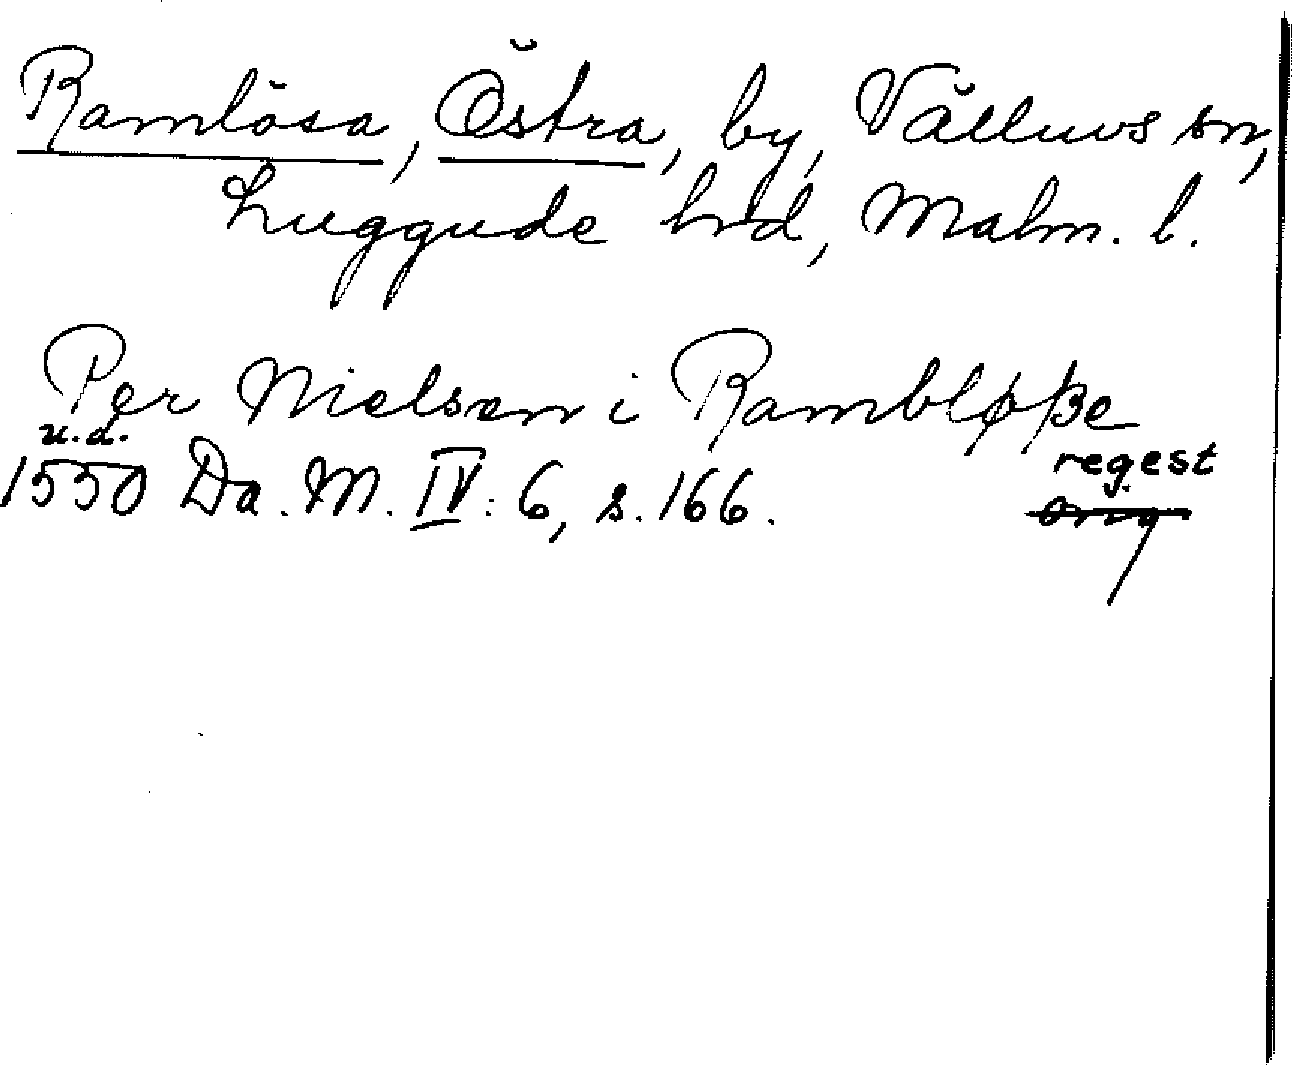 Ramlösa, Östra, by, Välluvs sn,
Luggude hrd, Malm. l.
Per Nielsen i Rambløße
u.d.
1550 Da. M. IV: 6, s. 166.
regest
orig